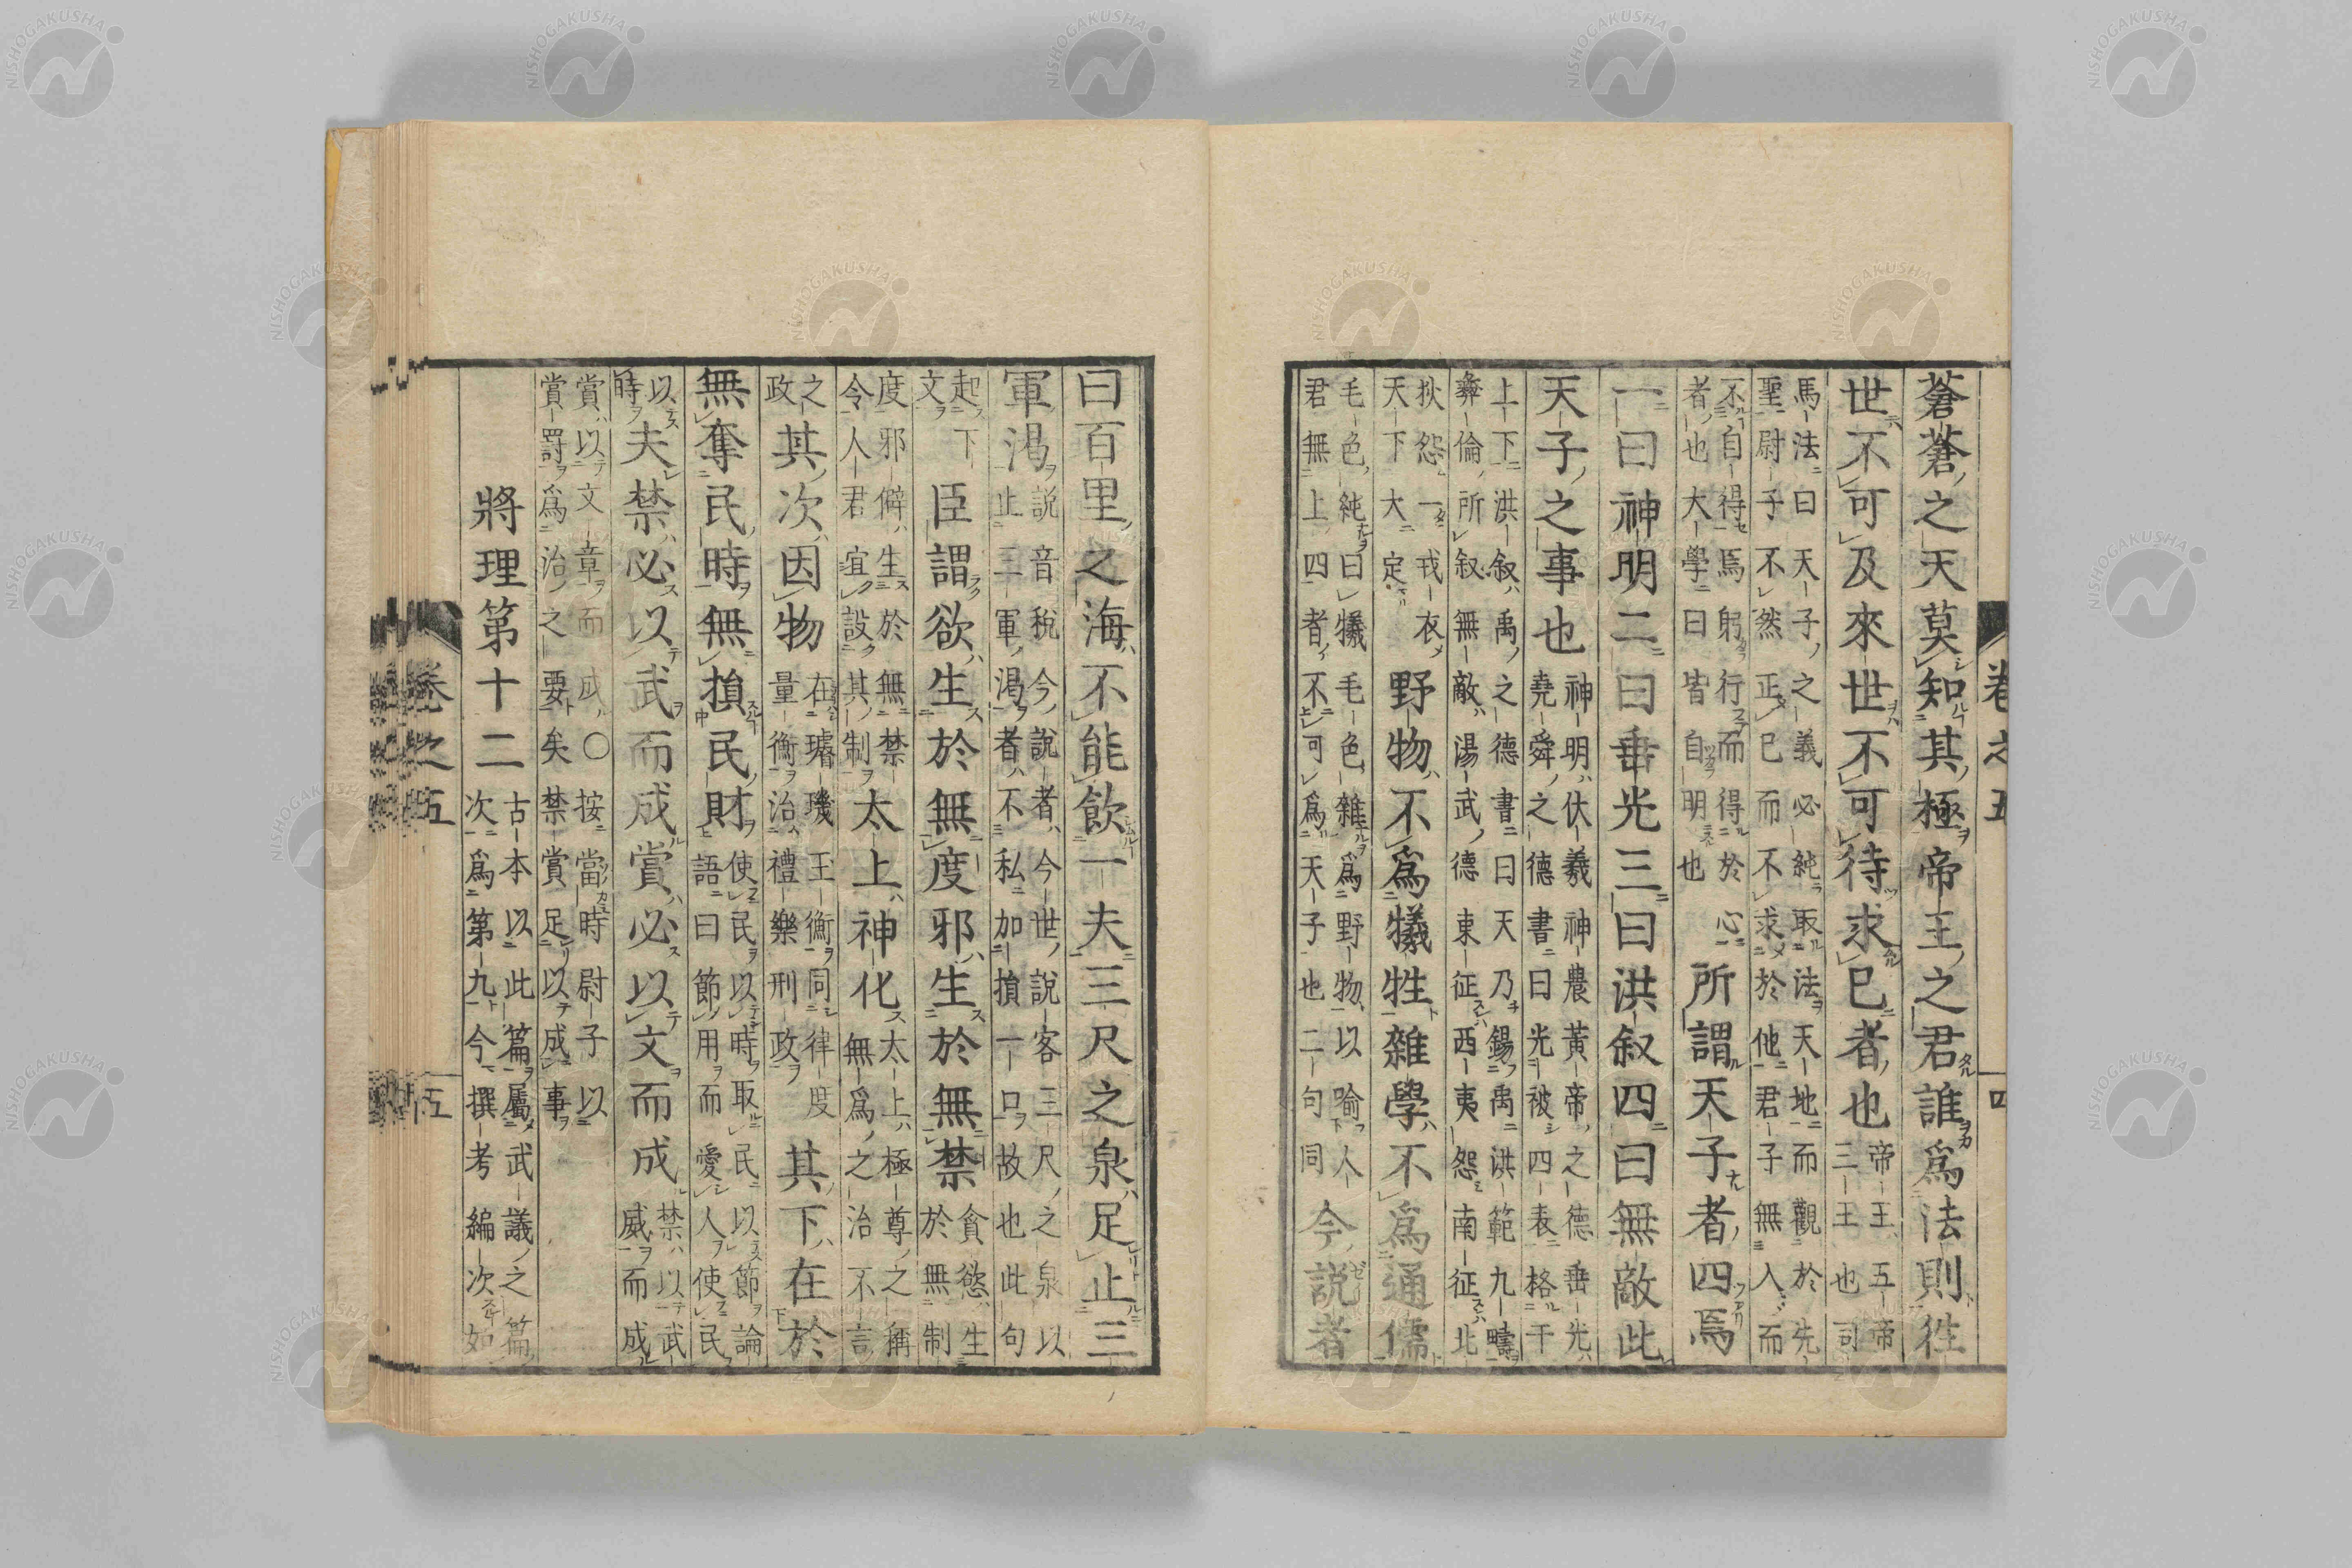 蒼蒼之天莫知其極帝王之君誰爲法則徃
世不可及來世不可待求已者也帝王五帝
三王也司
馬法曰天子之義必純取法天地而觀於先
聖尉子不然正已而不求於他君子無入而
不自得焉躬行而得於心
者也大學曰皆自明也
所謂天子者四焉
一曰神明二曰垂光三曰洪叙四曰無敵此
天子之事也神明伏羲神農黃帝之德垂光
堯舜之德書曰光被四表格于
上下洪叙禹之德書曰天乃錫禹洪範九疇
彝倫所叙無敵湯武德東征西夷怨南征北
狄怨一戎衣
天下大定
野物不爲犧牲雜學不爲通儒
毛色純曰犧毛色雜爲野物以喻人
君無上四者不可爲天子也二句同
今説者
曰百里之海不能飲一夫三尺之泉足止三
軍渴説音税今説者今世説客三尺之泉以
止三軍渴者不私加損一口故也此句
起下
文
臣謂欲生於無度邪生於無禁貪慾生
於無制
度邪僻生於無禁
令人君宜設其制
太上神化太上極尊之稱
無爲之治不言
之
政
其次因物在璿璣玉衡同律度
量衡治禮樂刑政
其下在於
無奪民時無損民財使民以時取民以節論
語曰節用而愛人使民
以
時
夫禁必以武而成賞必以文而成禁以武
威而成
賞以文章而成〇按當時尉子以
賞罰爲治之要矣禁賞足以成事
將理第十二古本以此篇屬武議之篇
次爲第九今撰考編次如
卷之五
四
卷之五
五
NISHOGAKUSHA